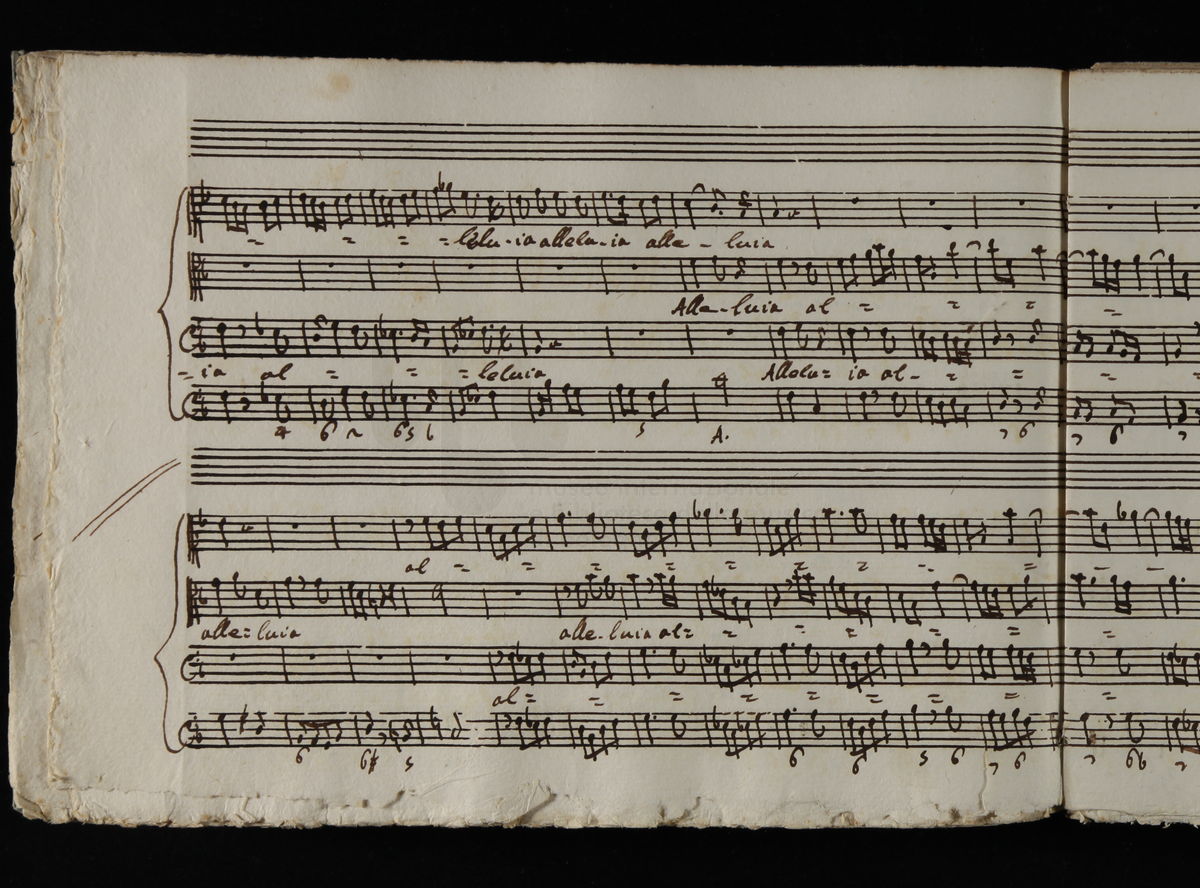 = = = = lelu-ia allelu-ia alle - luia
Alle-luia al = = =
= ia al = = = leluia Allelu= ia al- = = =
4 6 6 5 6 5 A. 7 6 7 6 7
al = = = = = = = = =
alle=luia alle-luia al= = = = = =
al= = = = = = = =
6 6# 5 6 6 5 6 7 6 7 6b 7